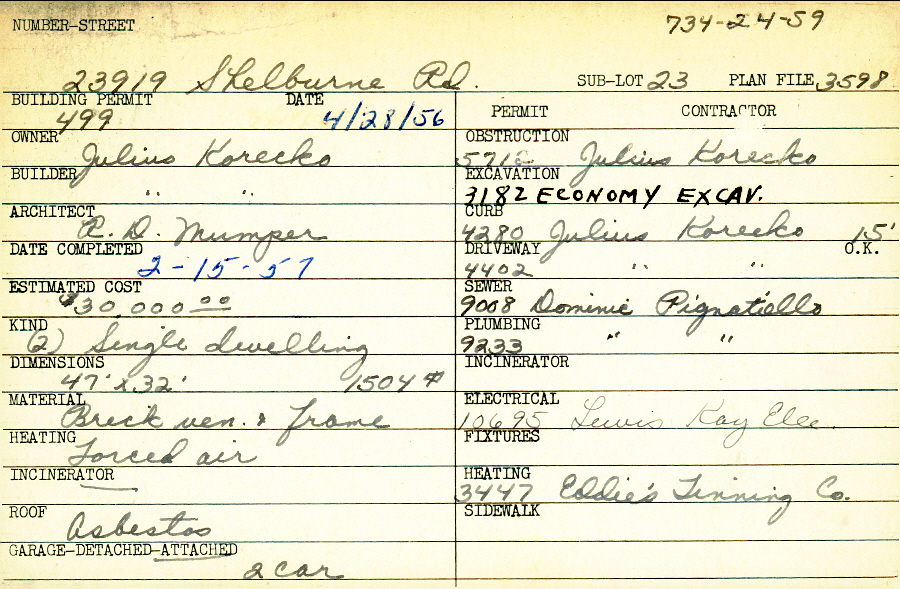 NUMBER-STREET
734-24-59
23919 Shelburne Rd.
SUB-LOT 23 PLAN FILE 3598
BUILDING PERMIT DATE
499 4/28/56
OWNER
Julius Korecko
BUILDER
" "
ARCHITECT
R. D. Mumper
DATE COMPLETED
2-15-57
ESTIMATED COST
$30,000 00
KIND
(2) Single dwelling
DIMENSIONS
47' x 32' 1504 #
MATERIAL
Brick ven. & frame
HEATING
Forced air
INCINERATOR
ROOF
Asbestos
GARAGE-DETACHED-ATTACHED
2 car
PERMIT CONTRACTOR
OBSTRUCTION
5712 Julius Korecko
EXCAVATION
3182 ECONOMY EXCAV.
CURB
4280 Julius Korecko 15'
DRIVEWAY O.K.
4402 " "
SEWER
9008 Dominic Pignatiello
PLUMBING
9233 " "
INCINERATOR
ELECTRICAL
10695 Lewis Kay Elec.
FIXTURES
HEATING
3447 Eddie's Tinning Co.
SIDEWALK